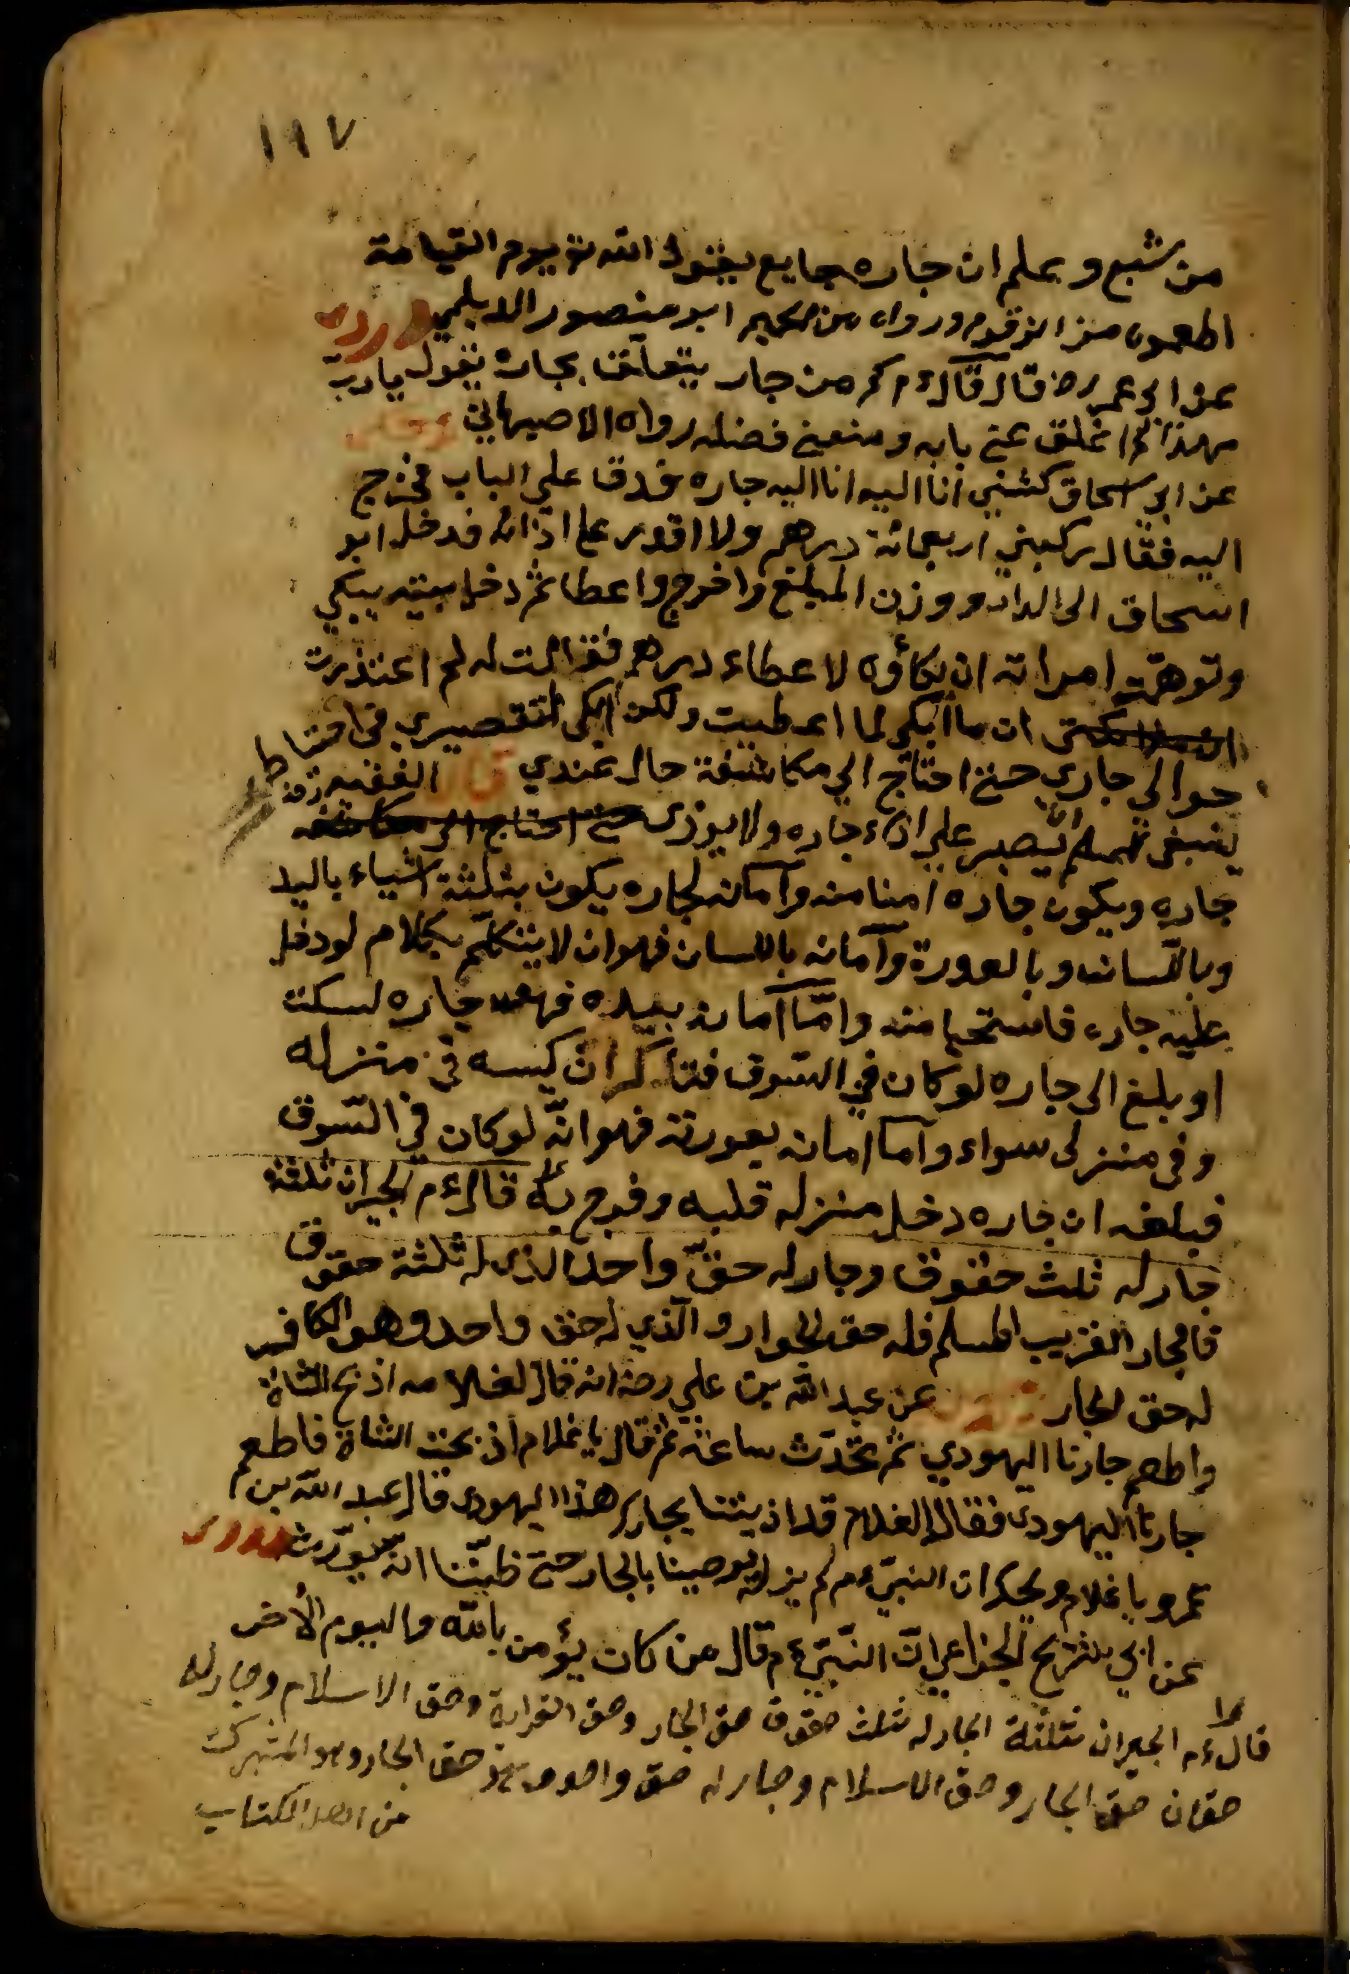 ١٩٧
من شبع و يعلم ان جاره جايع يقول الله تع يوم القيامة
اطعموه من الزقوم ورواه ابو منصور الديلمي
عن ابي عمر رض قال قال ءم كم من جار يتعلق بجاره يقول يارب
اغلق عني بابه ومنعني فضله رواه الاصبهاني
عن ابي اسحاق جاره فدق علي الباب فخرج
اليه فقال ركبني اربعمائة درهم ولا اقدر على ادائه فدخل ابو
اسحاق الى الدار و وزن المبلغ واخرج واعطا ثم دخل بيته يبكي
وتوهمت امراته ان بكاؤه لاعطاء درهم فقالت له لم اعتذرت
ان ما ابكي لما اعطيت ولكن ابكي لتقصيري في احتياط
حوالي جاري حتى احتاج الي مكاشفة حال عندي قال الفقيه
ينبغي للمسلم ان يصبر علي اذاء جاره ولا يوذى حتى احتاج الى مكاشفة
جاره ويكون جاره امنا منه وامانه لجاره يكون بثلثة اشياء باليد
وباللسان وبالعورة وامانه باللسان فهو ان لا يتكلم بكلام لو دخل
عليه جاره فاستحيا منه واما امانه بيده فهو جاره لسكت
او بلغ الى جاره لو كان في السوق فتذكر ان كيسه في منزله
وفى منزلى سواء واما امانه بعورته فهو انه لو كان في السوق
فبلغه ان جاره دخل منزله قلبه وفرح به قال ءم الجيران ثلثة
جار له ثلث حقوق وجار له حق واحد الذى له ثلثة حقوق
فالجار القريب المسلم فله حق الجوار والذي له حق واحد وهو الكافر
له حق الجار عن عبد الله بن علي رض انه قال لغلامه اذبح الشاة
واطعم جارنا اليهودي ثم تحدث ساعة ثم قال يا غلام اذ بحت الشاة فاطعم
جارنا اليهودى فقال الغلام قد اذيتنا بجارك هذا اليهودى قال عبد الله بن
عمرو يا غلام ويحك ان النبي ءم لم يزل يوصينا بالجار حتى ظننا انه سيورث
عن ابي شريح الخزاعي ان النبي ءم قال من كان يؤمن بالله واليوم الأخر
قال ءم الجيران ثلثة الجار له ثلث حقوق حق الجار وحق القرابة وحق الاسلام وجار له
حقان حق الجار وحق الاسلام وجار له حق واحد حق الجار وهو المشرك
من اهل الكتاب